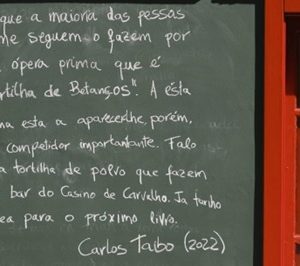 que a maioria das pessoas
me seguem o fazem por
ópera prima que é
rtilha de Betanzos". A ésta
ma esta a aparecerlhe, porém,
competidor importantante. Falo
a tortilha de polvo que fazem
bar do Casino de Carvalho. Ja tenho
ea para o próximo livro.
Carlos Taibo (2022)